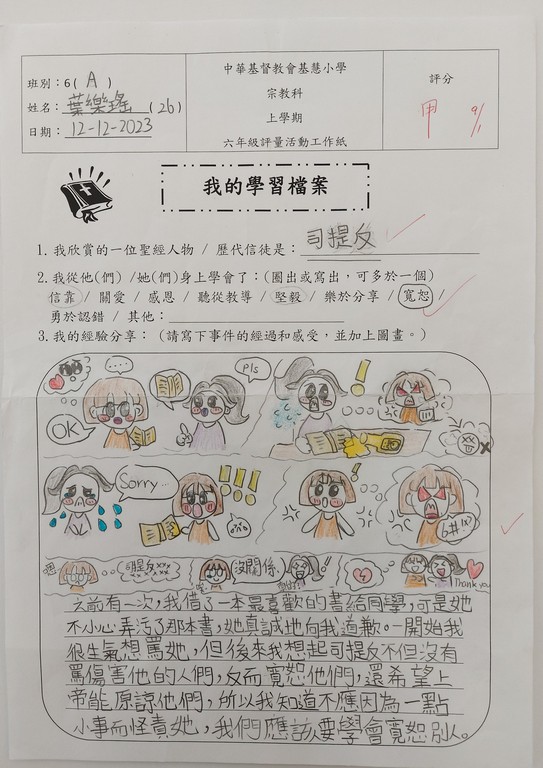 班別：6( A )
姓名：葉樂瑤(26)
日期：12-12-2023
中華基督教會基慧小學
宗教科
上學期
六年級評量活動工作紙
評分
甲 9/1
我的學習檔案
1. 我欣賞的一位聖經人物 / 歷代信徒是：司提反
2. 我從他(們) /她(們)身上學會了：(圈出或寫出，可多於一個)
信靠 / 關愛 / 感恩 / 聽從教導 / 堅毅 / 樂於分享 / 寬恕 /
勇於認錯 / 其他：
3. 我的經驗分享：（請寫下事件的經過和感受，並加上圖畫。）
...
OK
Pls
!
Sorry...
!!!
!
6#!
嗯
沒關係
Thank you
之前有一次，我借了一本最喜歡的書給同學，可是她
不小心弄污了那本書，她真誠地向我道歉。一開始我
很生氣想罵她，但後來我想起司提反不但沒有
罵傷害他的人們，反而寬恕他們，還希望上
帝能原諒他們，所以我知道不應因為一點
小事而怪責她，我們應該要學會寬恕別人。